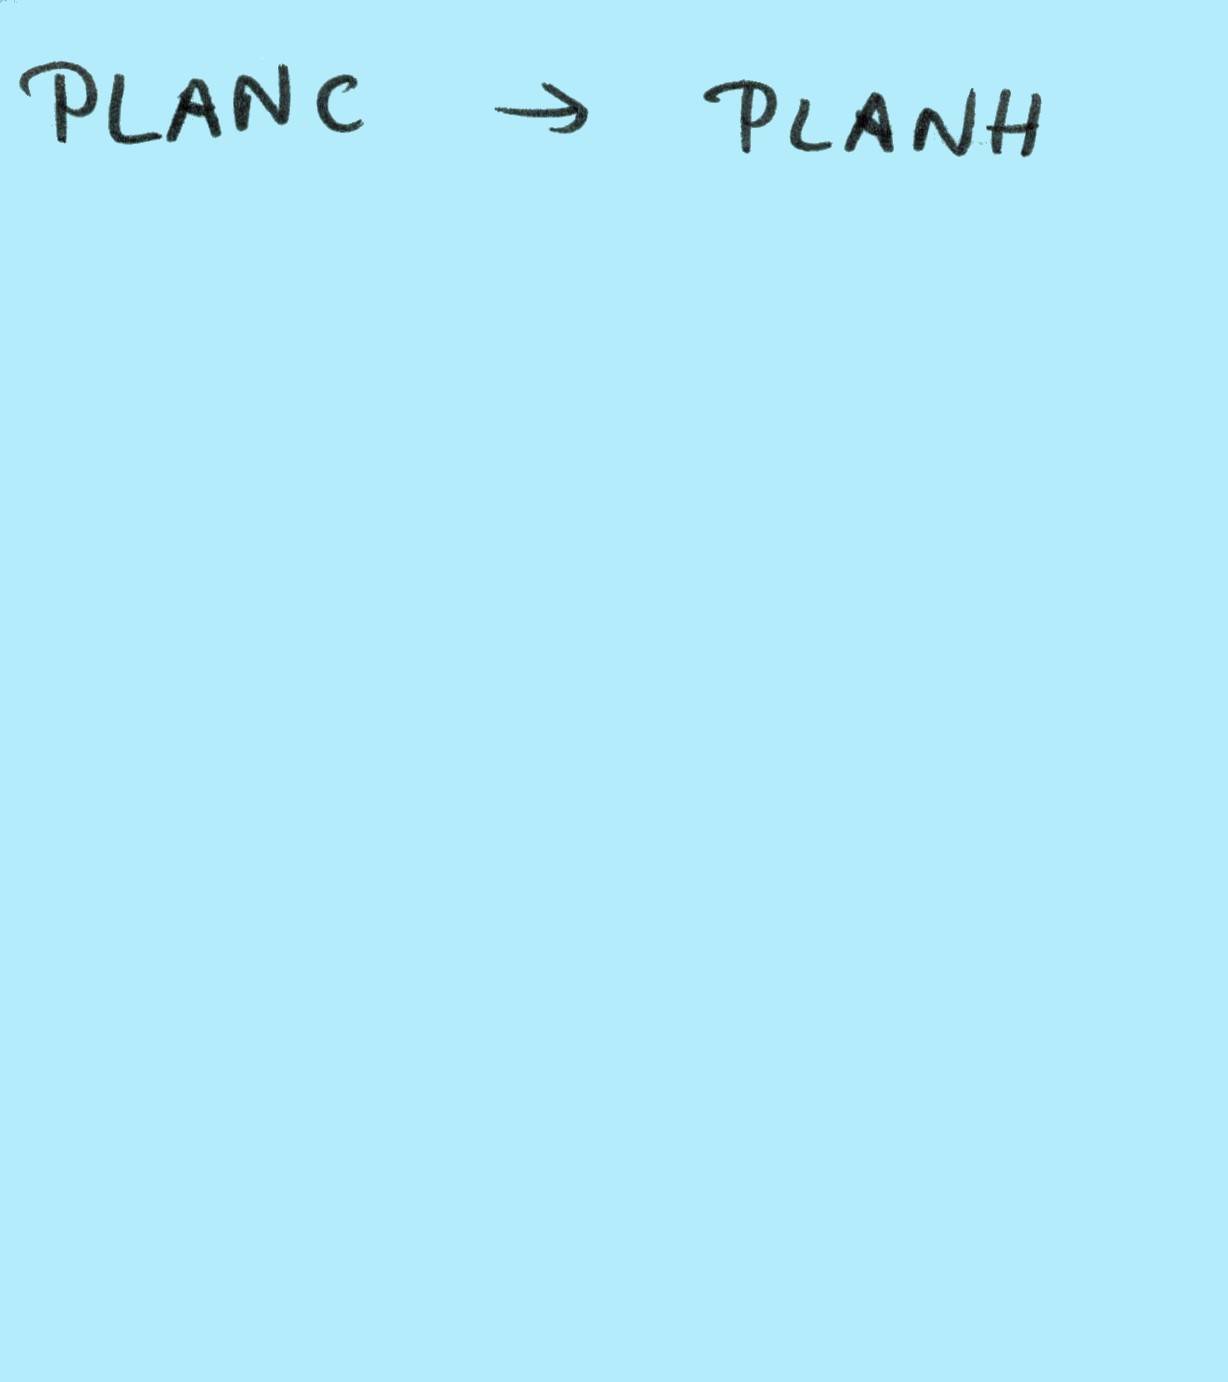 PLANC → PLANH